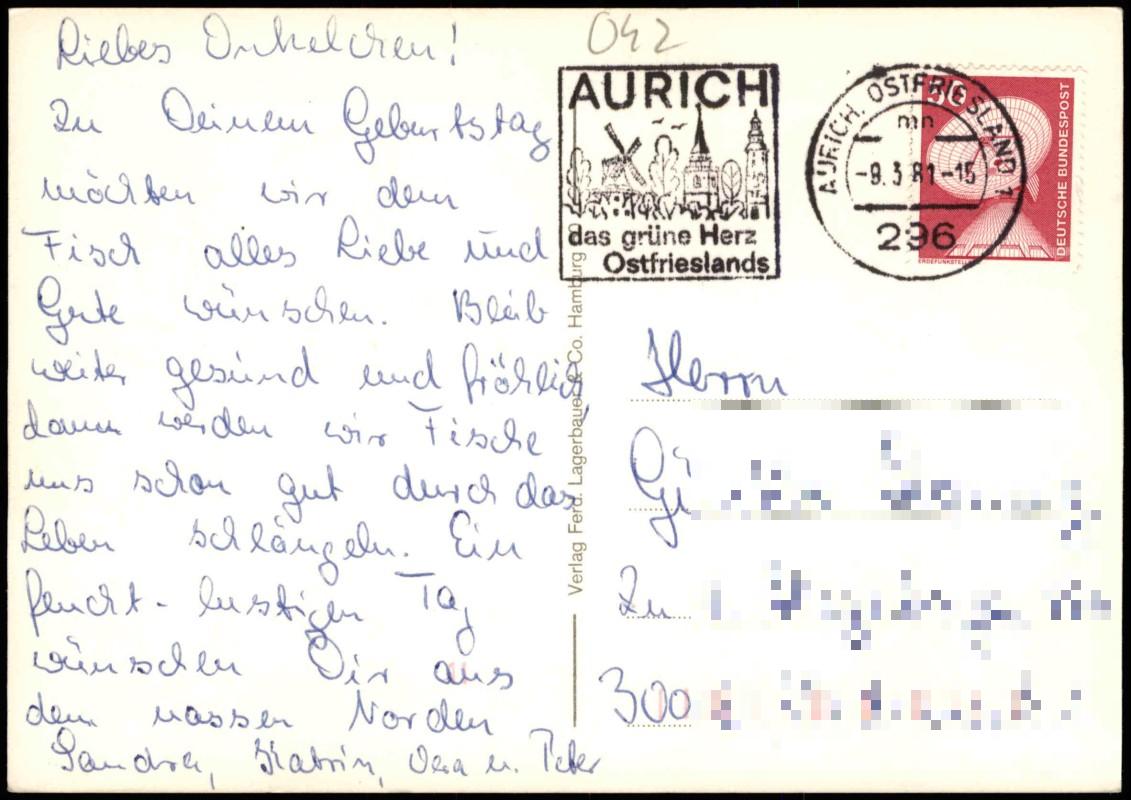 Liebes Onkelchen!
Zu Deinem Geburtstag
möchten wir dem
Fisch alles Liebe und
Gute wünschen. Bleib
weiter gesund und fröhlich,
dann werden wir Fische
uns schon gut durch das
Leben schlängeln. Ein
feucht-lustigen Tag
wünschen Dir aus
dem nassen Norden
Sandra, Katrin, Vera u. Peter
042
AURICH
das grüne Herz
Ostfrieslands
AURICH, OSTFRIESLAND 1
mn
-9.3.81-15
296
50
DEUTSCHE BUNDESPOST
ERDEFUNKSTELLE
Verlag Ferd. Lagerbauer & Co. Hamburg
Herrn
300